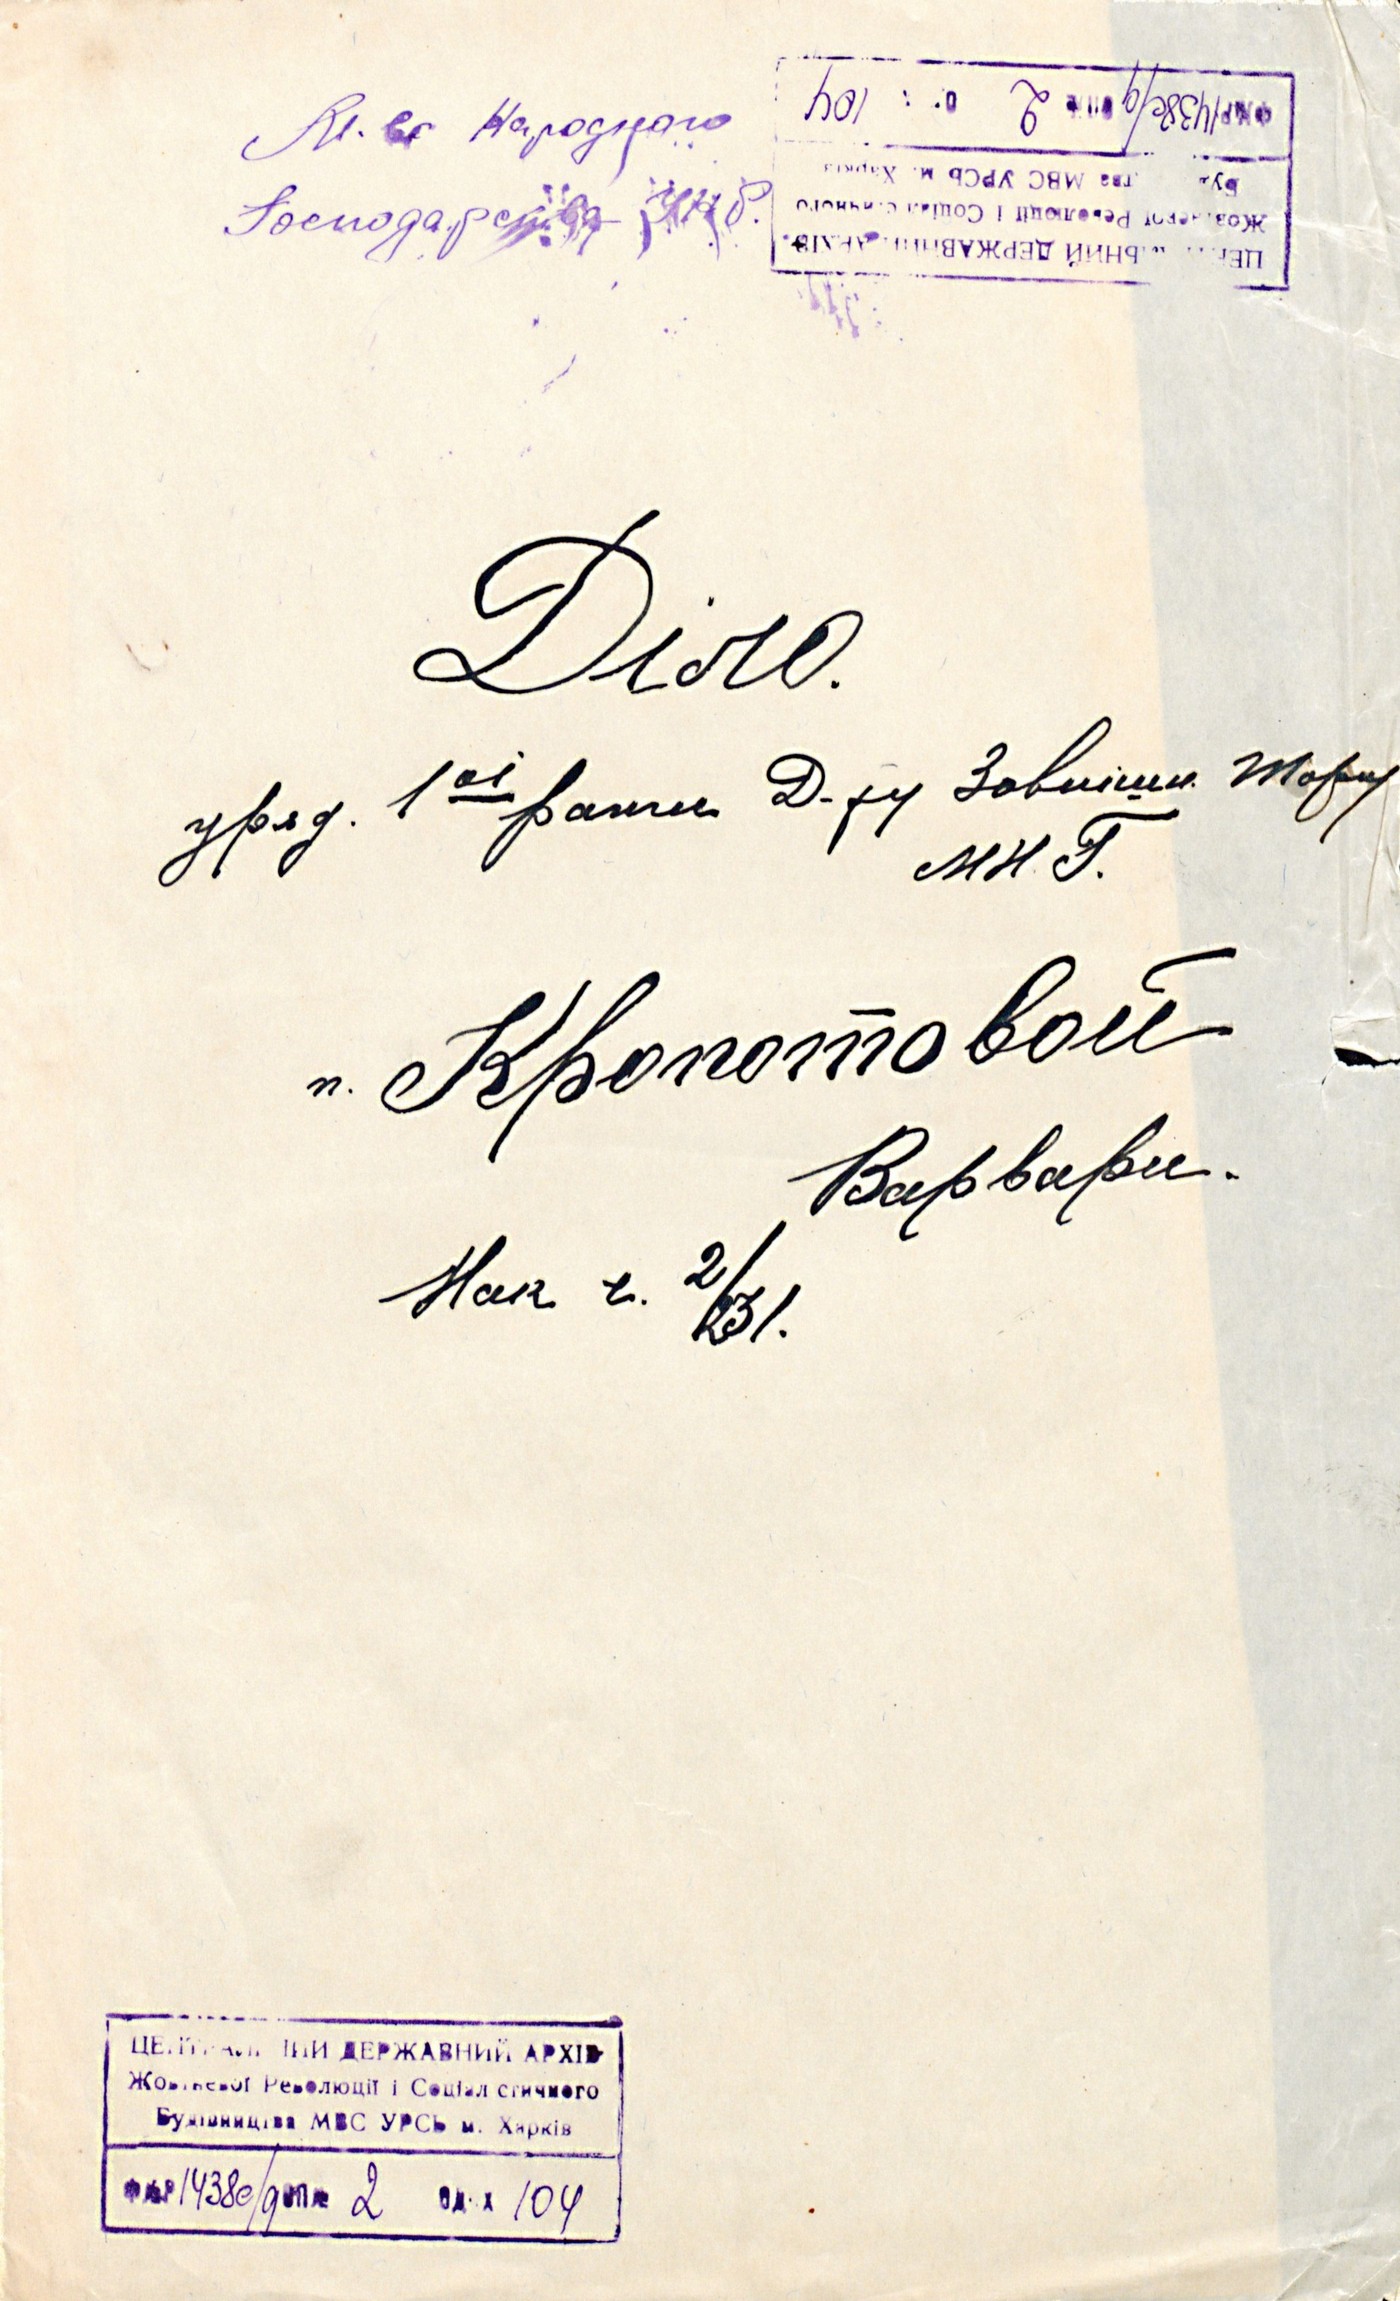 М-во Народного
Господарства УНР.
ЦЕНТРАЛЬНИЙ ДЕРЖАВНИЙ АРХІВ
Жовтневої Революції і Соціалістичного
Будівництва МВС УРСР м. Харків
2 104
Діло.
уряд. 1ої ранги Д-ту Зовнішн. Торг.
М.Н.Г.
п. Кропотовой
Варвари.
Нак ч. 2/231.
ЦЕНТРАЛЬНИЙ ДЕРЖАВНИЙ АРХІВ
Жовтневої Революції і Соціалістичного
Будівництва МВС УРСР м. Харків
2 од. х 104